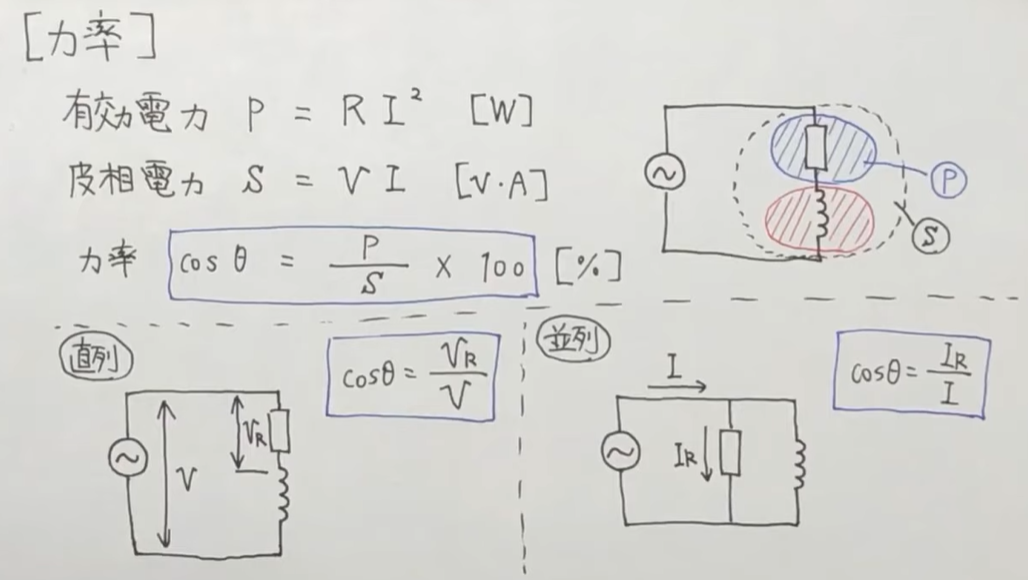 [力率]
有効電力 P = R I² [W]
皮相電力 S = V I [V·A]
力率 cos θ = P/S × 100 [%]
P
S
直列
cosθ = VR/V
VR
V
並列
I
cosθ = IR/I
IR